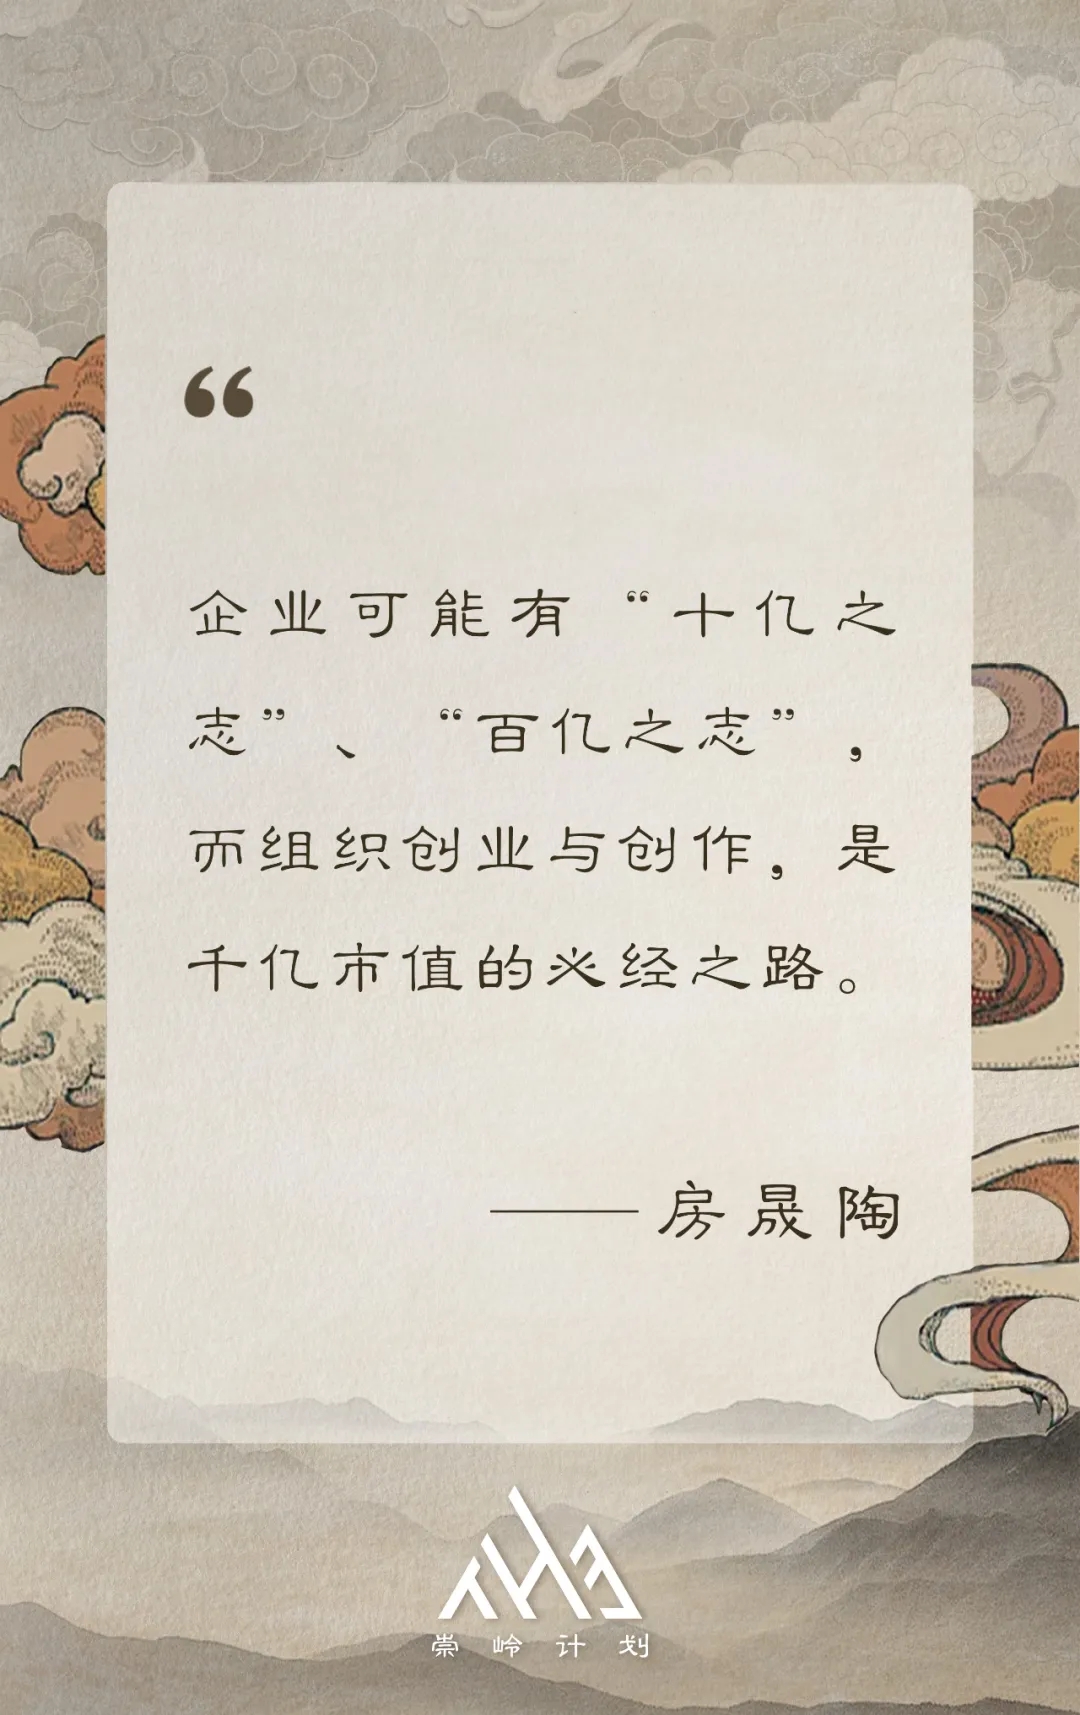 “
企业可能有“十亿之
志”、“百亿之志”，
而组织创业与创作，是
千亿市值的必经之路。
——房晟陶
崇岭计划